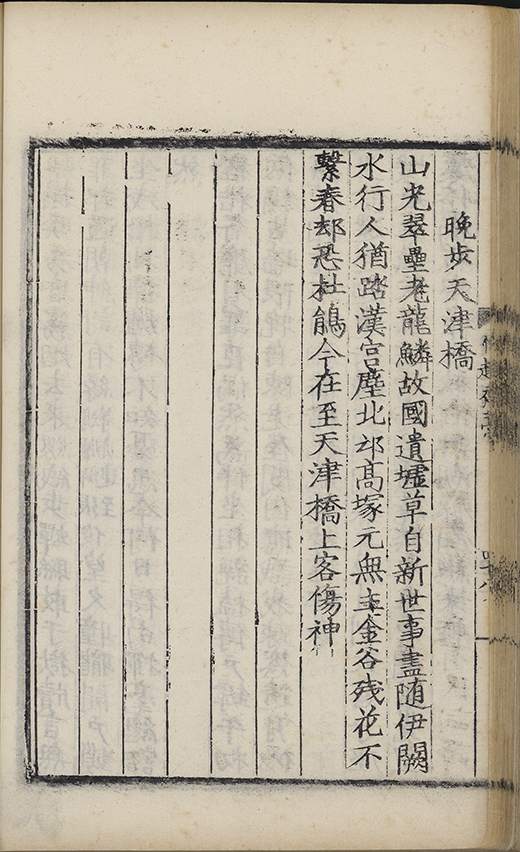 晚步天津橋
山光翠疊老龍鱗故國遺墟草自新世事盡随伊闕
水行人猶踏漢宮塵北邙髙塚元無主金谷残花不
繫春却恐杜鵑今在至天津橋上客傷神